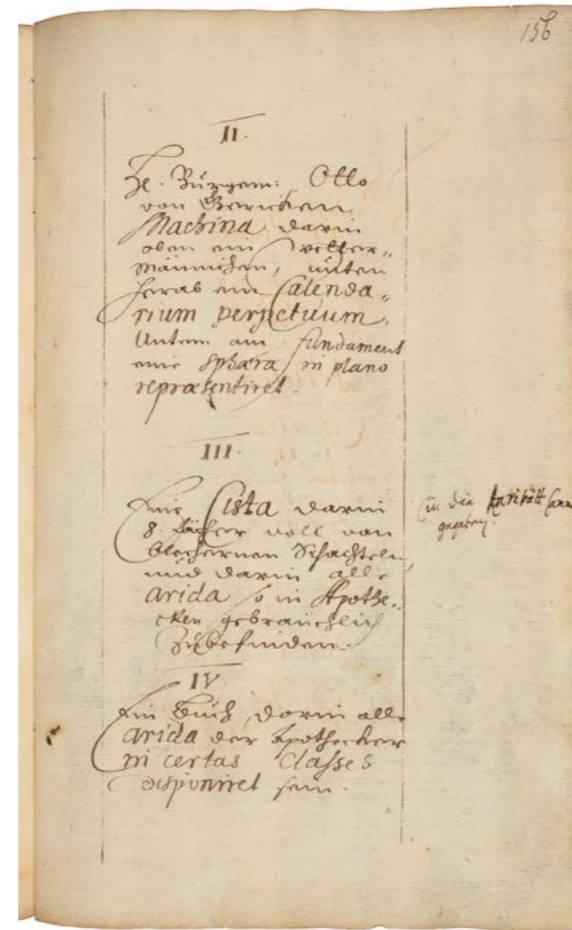 156
II.
H. Bürgem: Otto
von Gericken
Machina darin
oben ein Wetter„
männichen, unten
herab ein Calenda„
rium perpetuum.
Untem am fundament
eine Sphæra in plano
repræsentiret.
III.
Eine Cista darin
8. Fächer voll von
blechernen Schachteln,
und darin alle
arida so in Apothe„
cken gebräuchlich
zubefinden.
in die Raritätt Cam
gegeben.
IV
Ein Buch darin alle
arida der Apothecker
in certas Classes
disponiret sein.